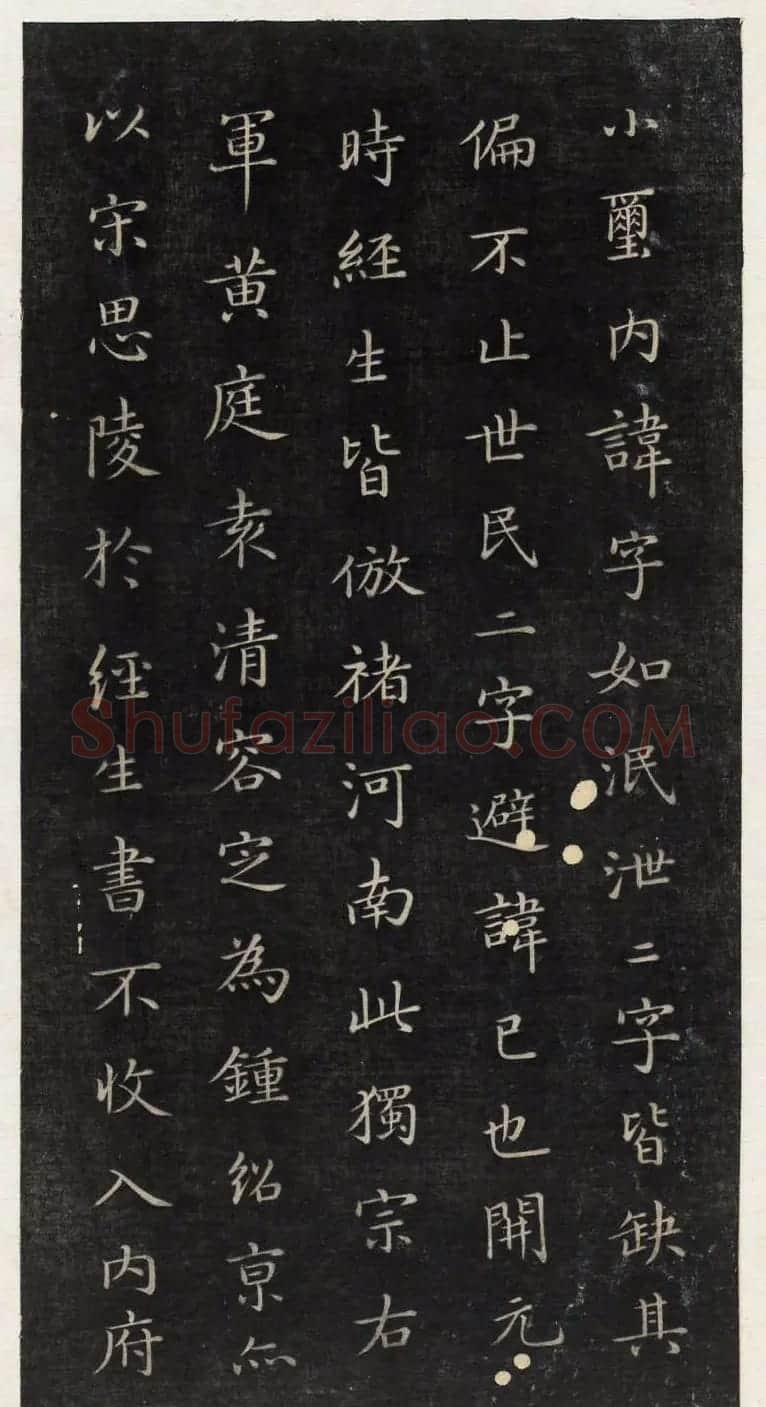 小璽内諱字如泯泄二字皆缺其
偏不止世民二字避諱已也開元
時經生皆倣褚河南此獨宗右
軍黄庭袁清容定為鍾紹京亦
以宋思陵於經生書不收入内府
Shufaziliao.COM